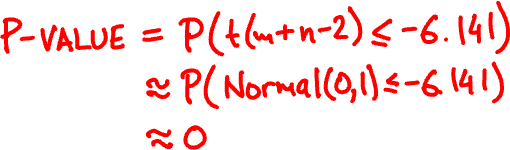 P-VALUE = P(t(m+n-2) ≤ -6.141)
≈ P(Normal(0,1) ≤ -6.141)
≈ 0